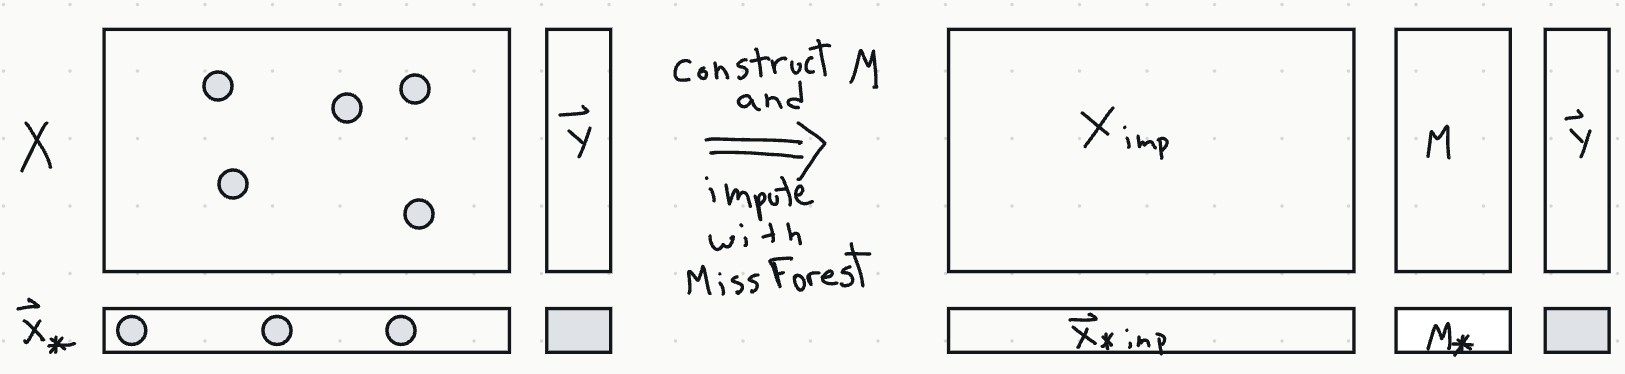 X
y⃗
Construct M
and
impute
with
MissForest
X imp
M
y⃗
x⃗*
x⃗* imp
M*